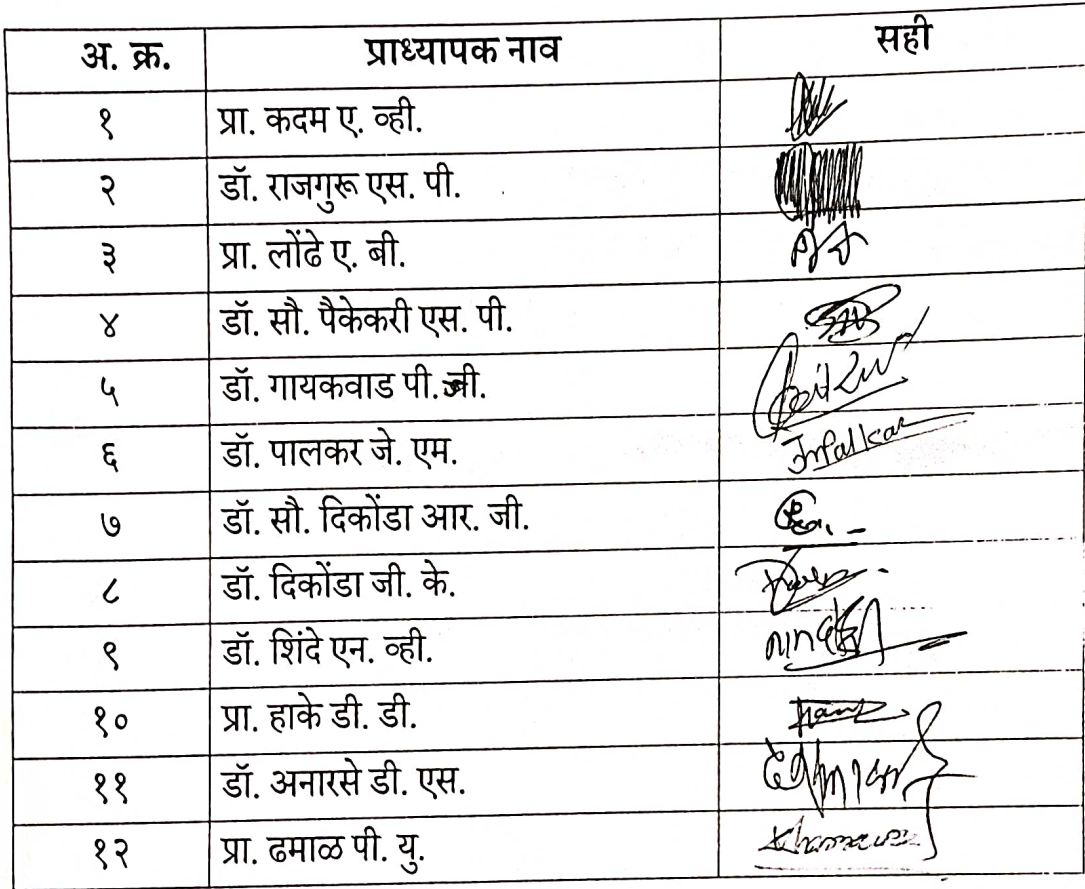 अ. क्र. प्राध्यापक नाव सही
१ प्रा. कदम ए. व्ही.
२ डॉ. राजगुरू एस. पी.
३ प्रा. लोंढे ए. बी.
४ डॉ. सौ. पैकेकरी एस. पी.
५ डॉ. गायकवाड पी. जी.
६ डॉ. पालकर जे. एम. Jmpalkar
७ डॉ. सौ. दिकोंडा आर. जी.
८ डॉ. दिकोंडा जी. के.
९ डॉ. शिंदे एन. व्ही.
१० प्रा. हाके डी. डी.
११ डॉ. अनारसे डी. एस.
१२ प्रा. ढमाळ पी. यु.